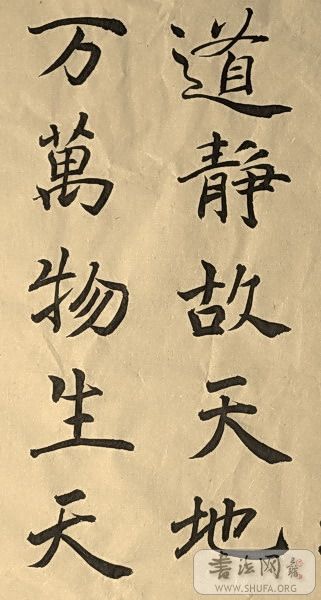 道靜故天地
万萬物生天
書法网
WWW.SHUFA.ORG